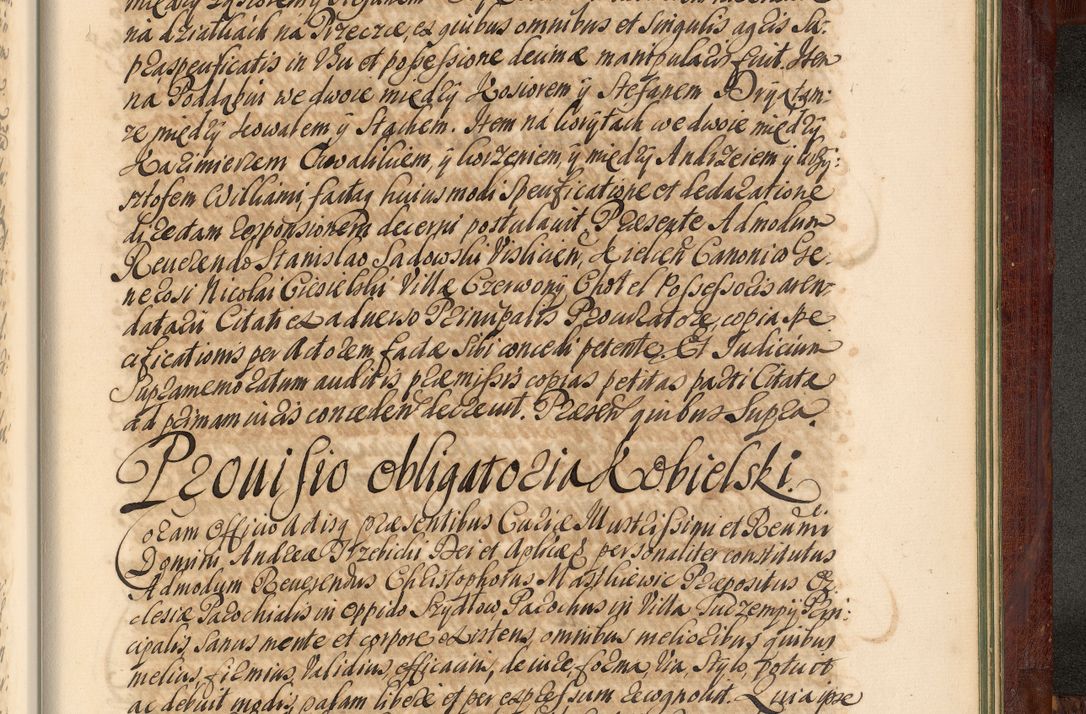 na działkach na Przeczce, ex quibus omnibus et singulis agris su-
praspecificatis in Usu et possessione decimæ manipularis fuit. Item
na Poddębiu we dwoie między Kosiorem ÿ Stefanem
rze między Kowalem ÿ Stachem. Item na we dwoie między
Kazimierzem ÿ ÿ między Andrzeiem ÿ Krzy-
sztofem factaq huiusmodi specificatione et declaratione
directam responsionem decerni postulavit. Præsente Admodum
Reverendo Stanislao Sadowski Vislicien, Kielcen Canonico Ge-
nerosi Nicolai Villæ Czerwony Possessoris aren-
datarii Citati ex adverso Principalis Procuratore, copia spe
cificationis per Actorem factæ sibi concedi petente. Et Judicium
supramemoratum auditis, præmissis copias petitas parti Citatæ
ad primam iuris concedend decrevit. Præsent quibus Supra.
Provisio obligatoria Kobielski.
Coram Officio Actisq præsentibus Curiæ Illustrissimi et Reverendi
Domini, Andreæ Trzebicki Dei et Aplicæ personaliter constitutus
Admodum Reverendus Christophorus Præpositus Ec-
clesiæ Parochialis in Oppido Szydlow Parochus in Villa Prin-
cipalis, sanus mente et corpore existens, omnibus melioribus, quibus
melius, firmius, validius, efficacius, de iure, forma, via, stylo, potuit
ac debuit modis, palam libere et per expressum recognovit. Quia ipse